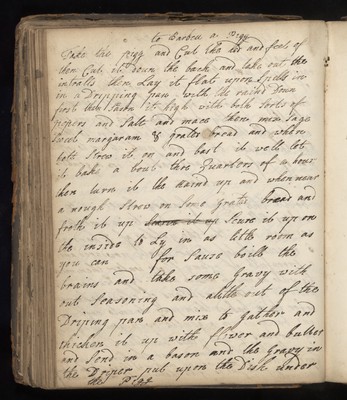 to Barbeu a Pigg
Take the pigg and Cut the hed and feet of
then Cut it down the back and take out the
intralls then Lay it flatt upon Spills in
in a Dripping pan with the raind Down
first then Seson it high with both sorts of
pepers and Salte and mace then mix Sage
Sweet margaram & grated bread and when
both Strew it on and bast it well lett
it bake a bout thre Quarters of a hour
then turn it the Raind up and when near
a nough Strew on Some Grate bread and
froth it up Scure it up on
the inside to Ly in as little room as
you can for Sause boille the
brains and take some Gravy with
out Seasoning and alittle out of the
Driping pan and mix to gather and
thicken it up with flower and butter
and Send in a bason and the Gravy in
the Driper put upon the Dish under
the Pigg